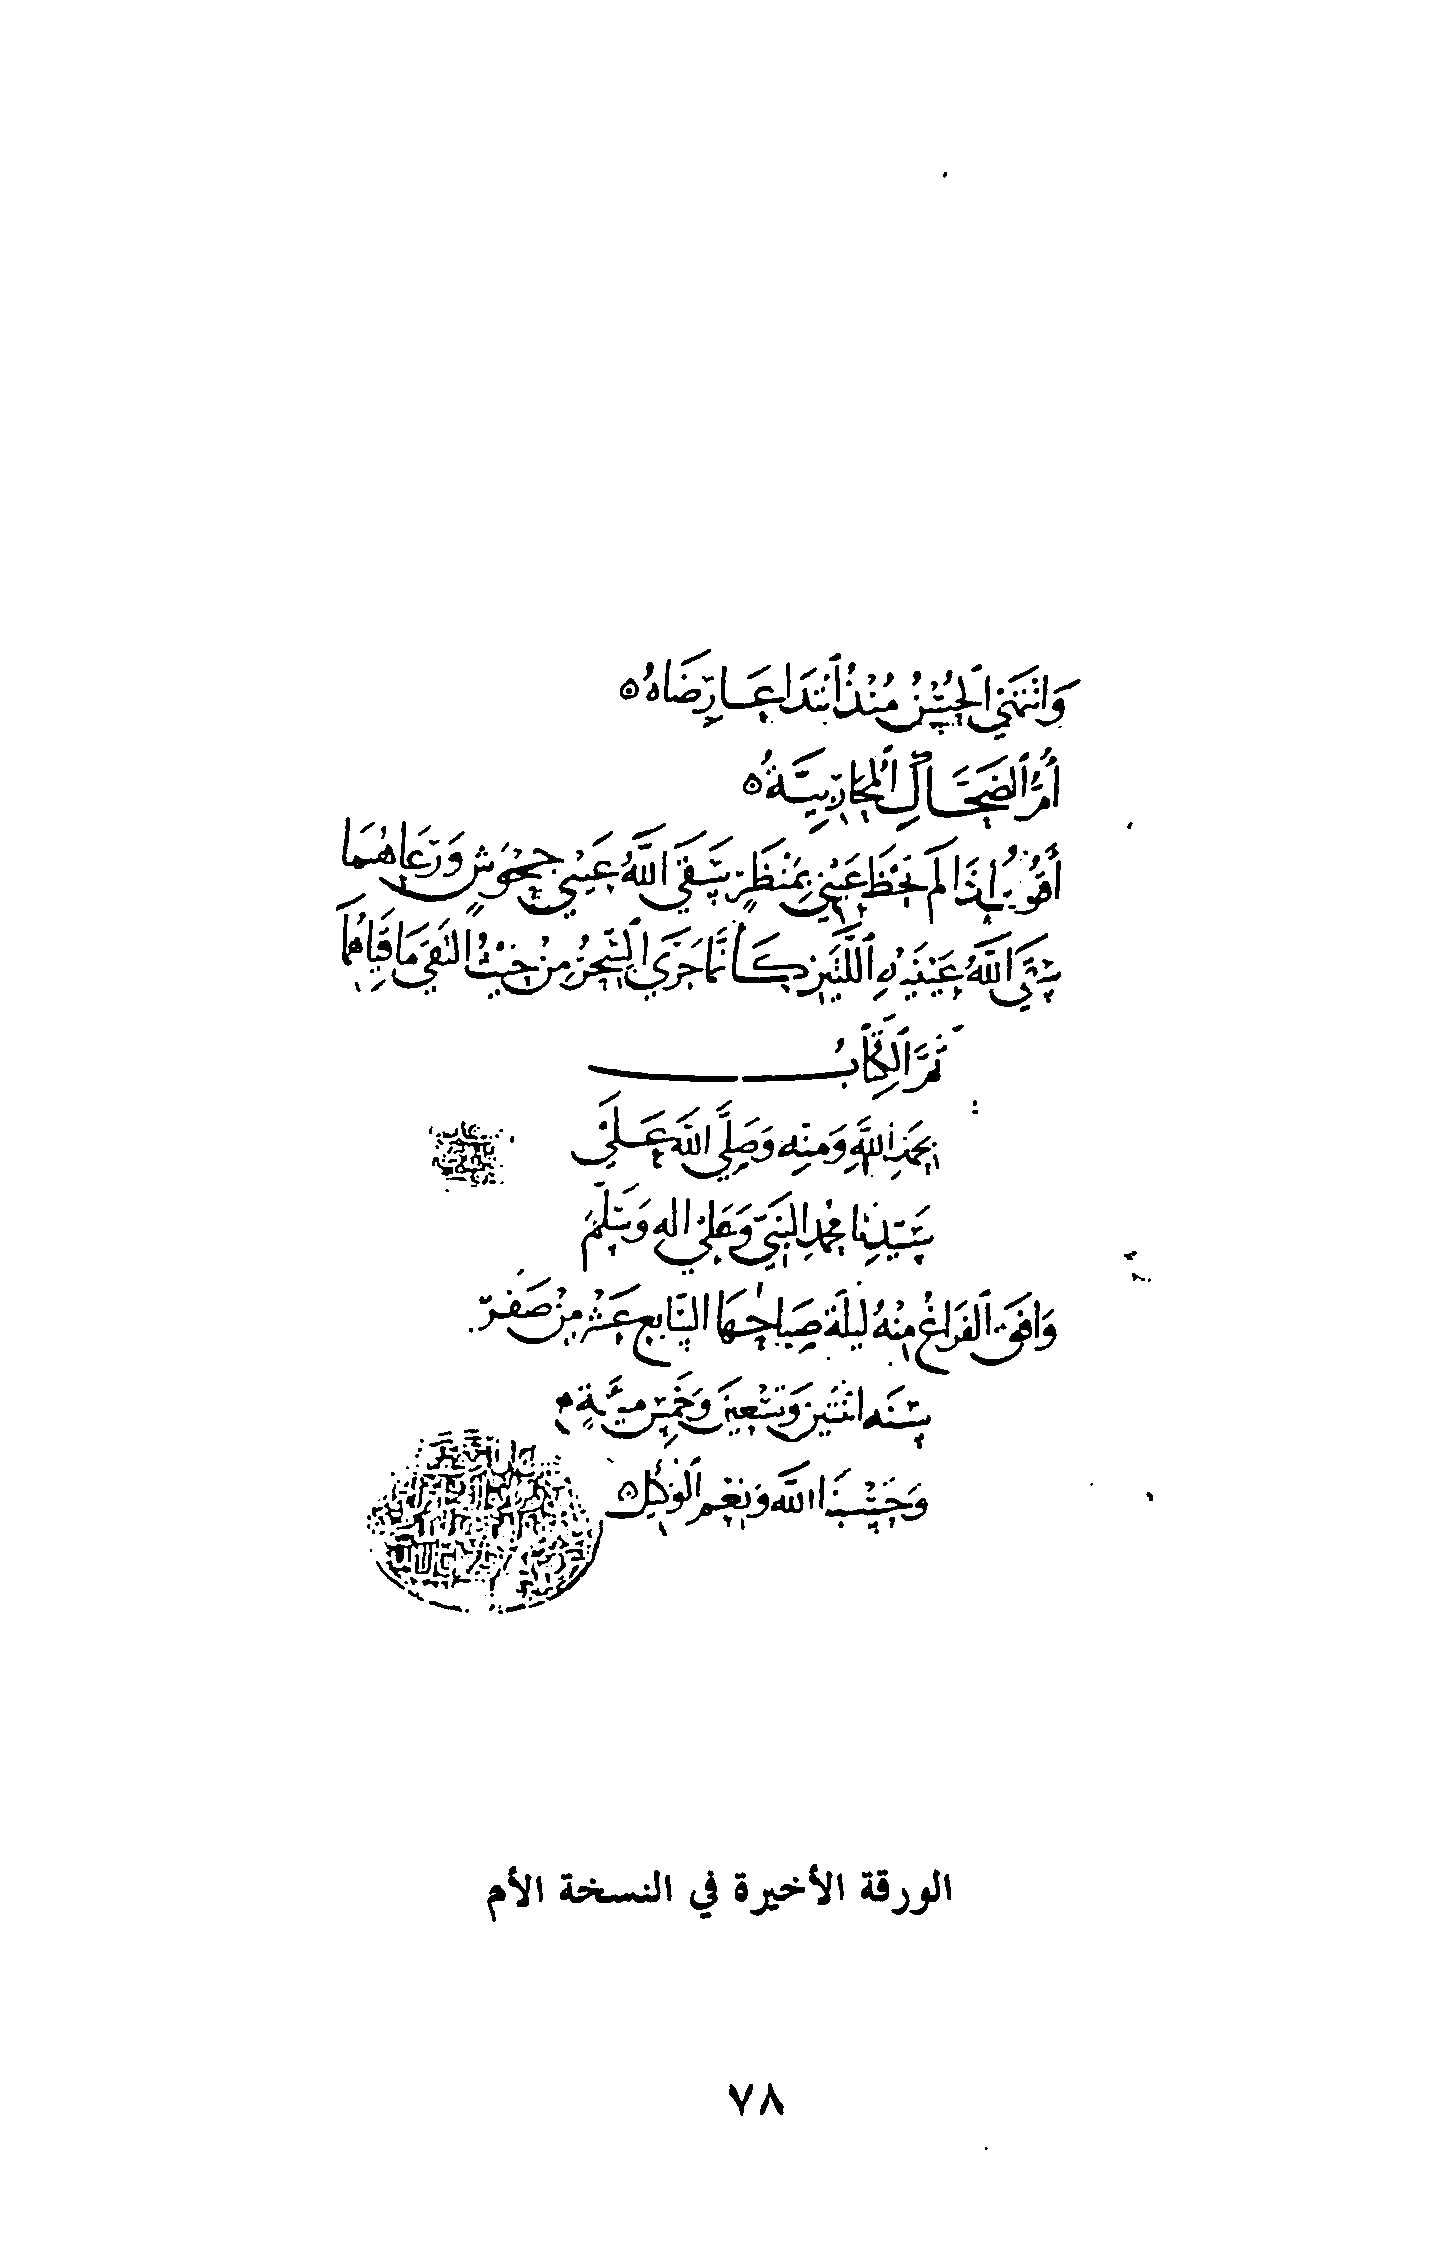 وَانْتَهَى الْحُسْنُ مُنْذُ ابْتَدَا عَارِضَاهُ ه
أُمُّ الضَّحَّاكِ الْمُحَارِبِيَّةُ ه
أَقُولُ إِذَا لَمْ تَحْظَ عَيْنِي بِمَنْظَرٍ سَقَى اللَّهُ عَيْنَيْ جَحْوَشٍ وَرَعَاهُمَا
سَقَى اللَّهُ عَيْنَيْهِ اللَّتَيْنِ كَأَنَّمَا جَرَى السِّحْرُ مِنْ حَيْثُ الْتَقَى مَاقِيَاهُمَا
تَمَّ الْكِتَابُ
بِحَمْدِ اللَّهِ وَمَنِّهِ وَصَلَّى اللَّهُ عَلَى
سَيِّدِنَا مُحَمَّدٍ النَّبِيِّ وَعَلَى اله وَسَلَّمَ
وَافَقَ الفَرَاغُ مِنْهُ لَيْلَةَ صَبَاحُهَا السَّابِعَ عَشَرَ مِنْ صَفَرٍ
سَنَه اثْنَتَيْنِ وَتِسْعِينَ وَخَمْسِ مِئَةٍ
وَحَسْبُنَا اللَّه وَنِعْمَ الْوَكِيلُ ه
الورقة الأخيرة في النسخة الأم
٧٨